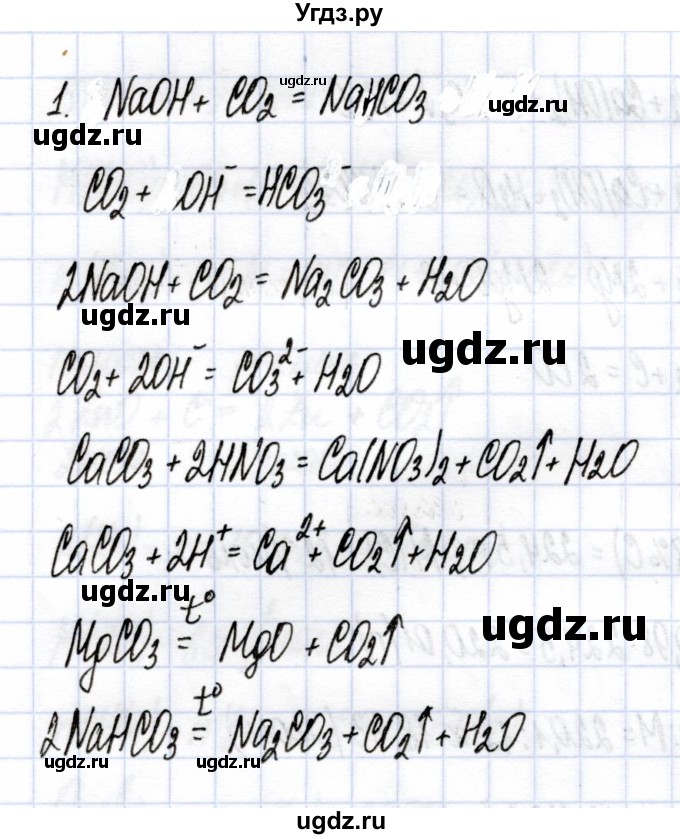 Угдз.ру
ugdz.ru
1. NaOH + CO₂ = NaHCO₃
ugdz.ru
ugdz.ru
CO₂ + OH⁻ = HCO₃⁻
2NaOH + CO₂ = Na₂CO₃ + H₂O
ugdz.ru
ugdz.ru
CO₂ + 2OH⁻ = CO₃²⁻ + H₂O
CaCO₃ + 2HNO₃ = Ca(NO₃)₂ + CO₂↑ + H₂O
CaCO₃ + 2H⁺ = Ca²⁺ + CO₂↑ + H₂O
ugdz.ru
ugdz.ru
MgCO₃ =^t° MgO + CO₂↑
2NaHCO₃ =^t° Na₂CO₃ + CO₂↑ + H₂O
ugdz.ru
ugdz.ru
ugdz.ru
ugdz.ru